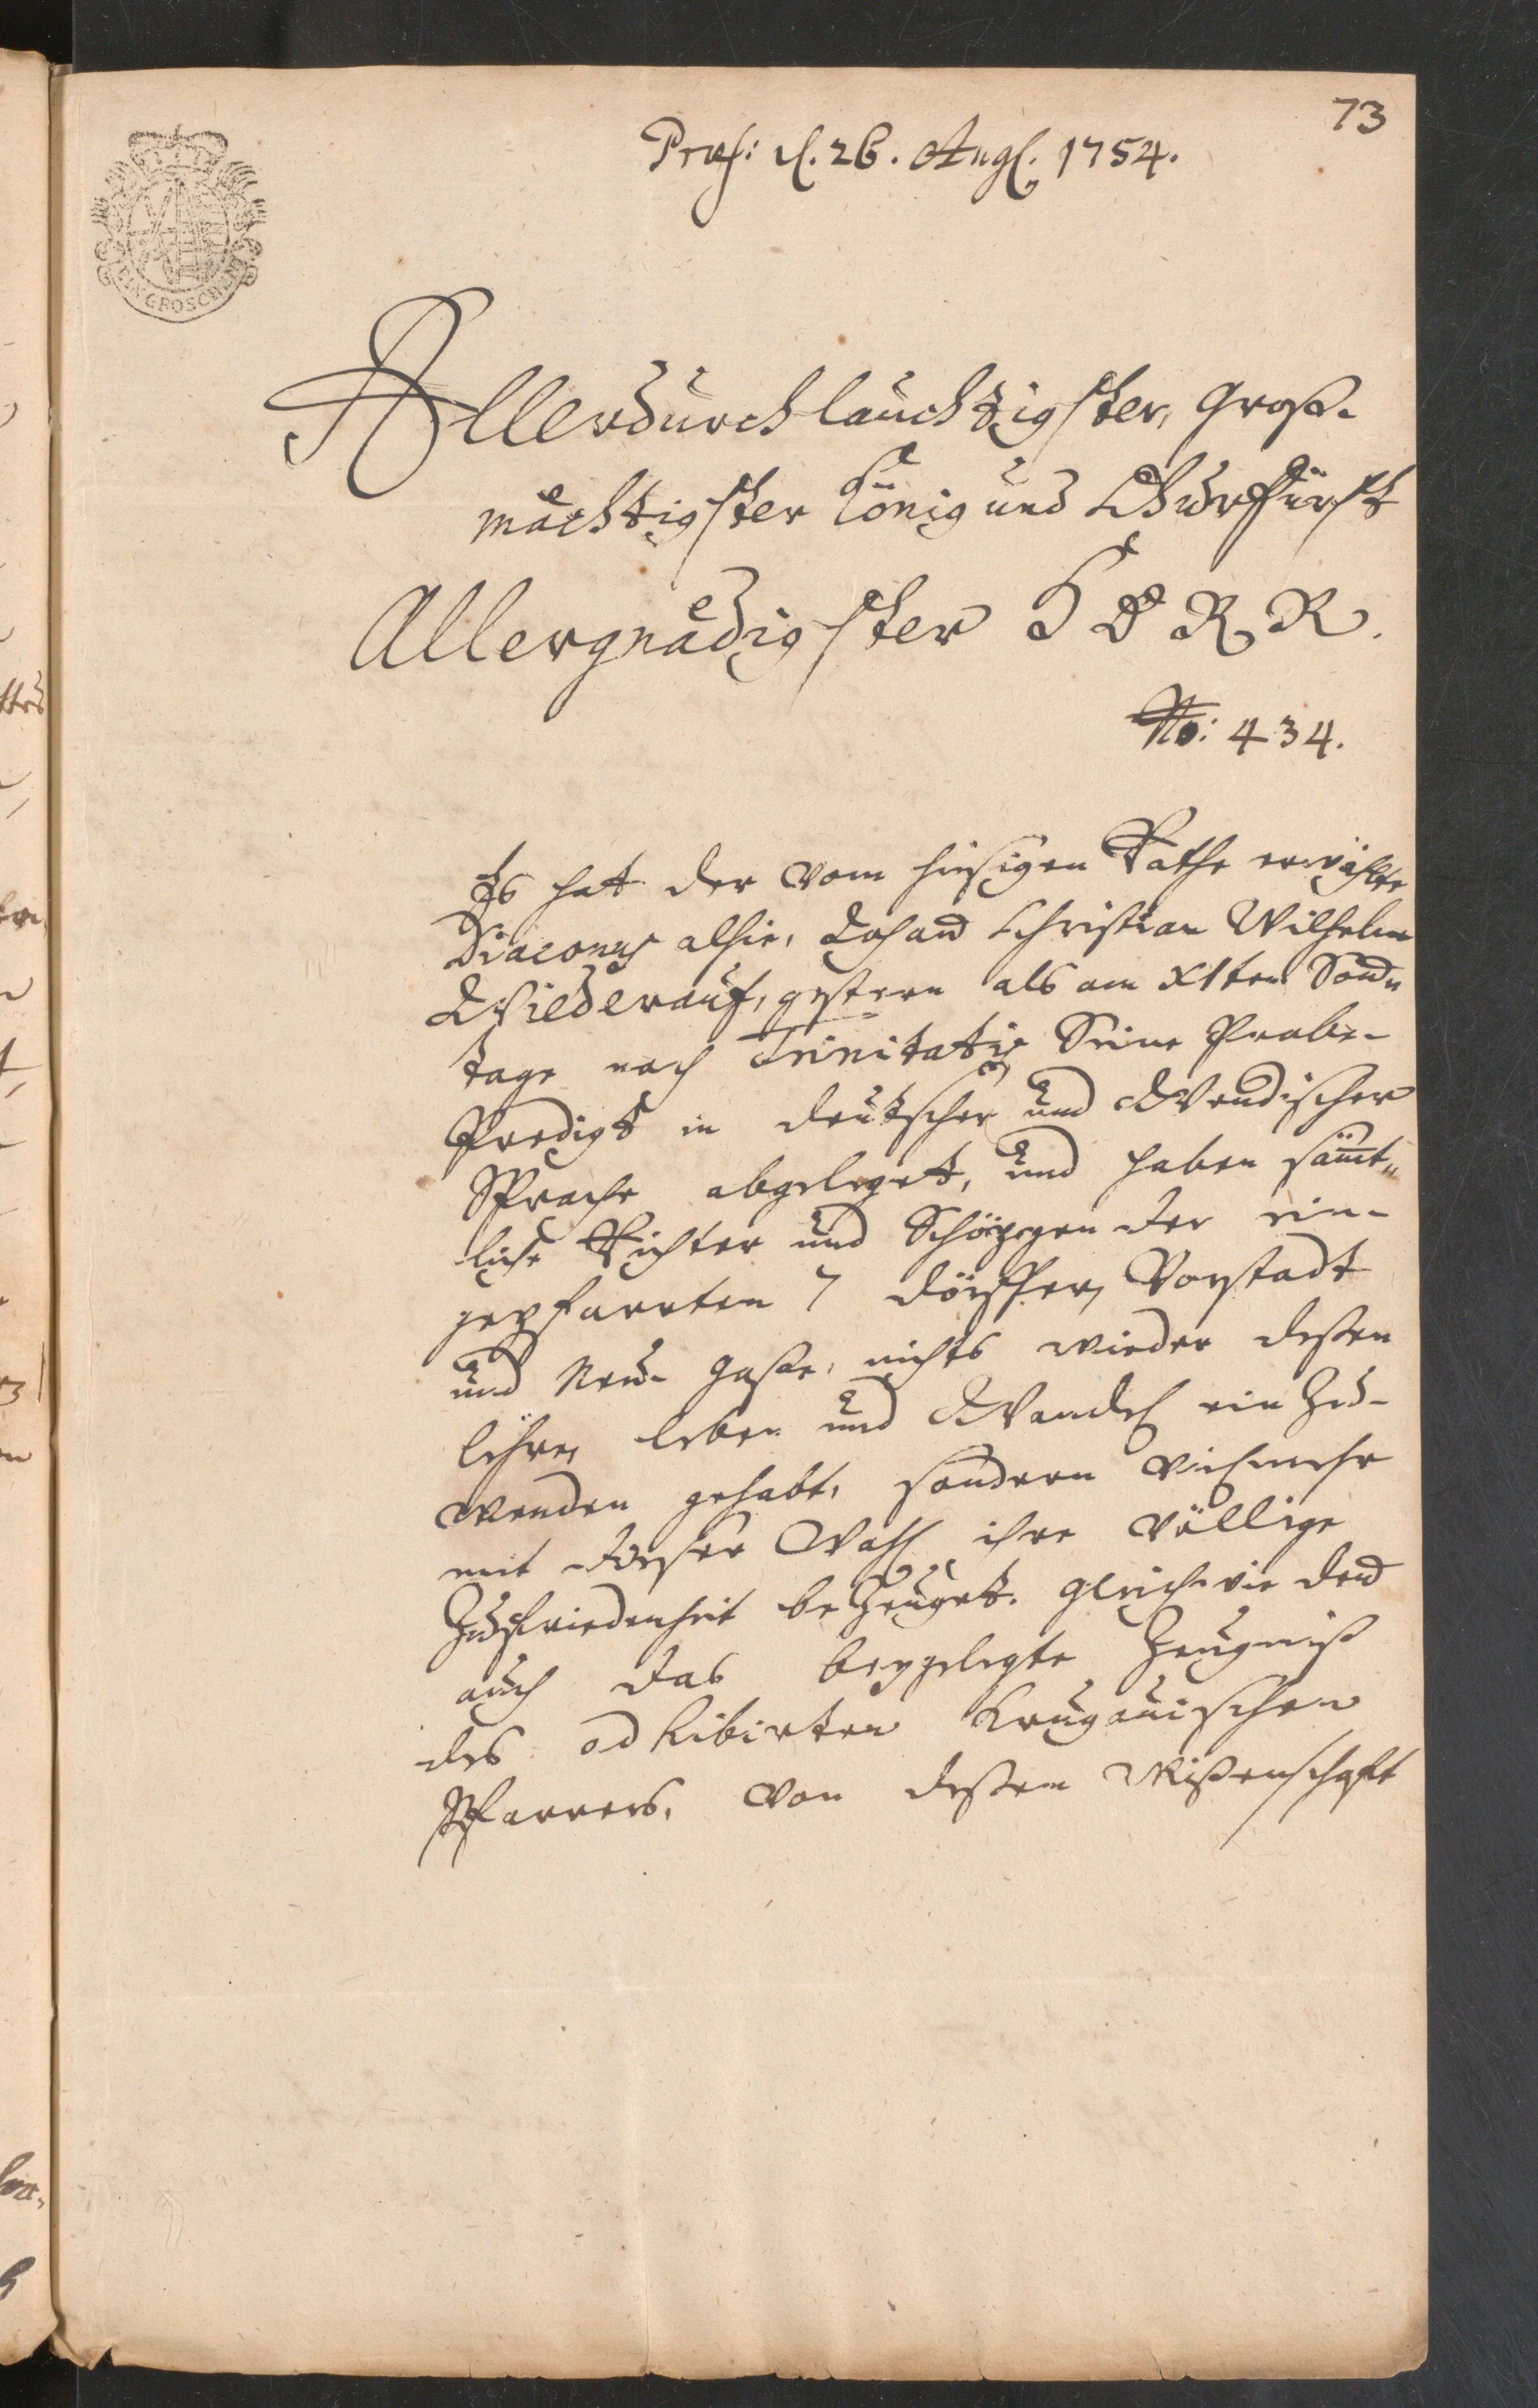 73
Præs: d. 26. Aug. 1754.
EIN GROSCHEN
Allerdurchlauchtigster, Groß-
mächtigster König und Churfürst
Allergnädigster HERR.
No: 434.
Es hat der vom hiesigen Rathe erwählte
Diaconus alhier, Johann Christian Wilhelm
Wiederauf, gestern als am XI ten Sonn
tage nach Trinitatis Seine Probe-
Predigt in deutscher und Wendischer
Sprache abgeleget, und haben sämt„
liche Richter und Schöppen der ein-
gepfarrten 7 dörffer, Vorstadt
und Neu- Gaße, nichts wieder deßen
Lehre, Leben und Wandel ein Zu-
wenden gehabt, sondern vielmehr
mit dieser Wahl ihre völlige
Zufriedenheit be Zeuget. Gleichwie denn
auch das beygelegte Zeugniß
des adhibirten Pfarrers, von deßen Wißenschafft